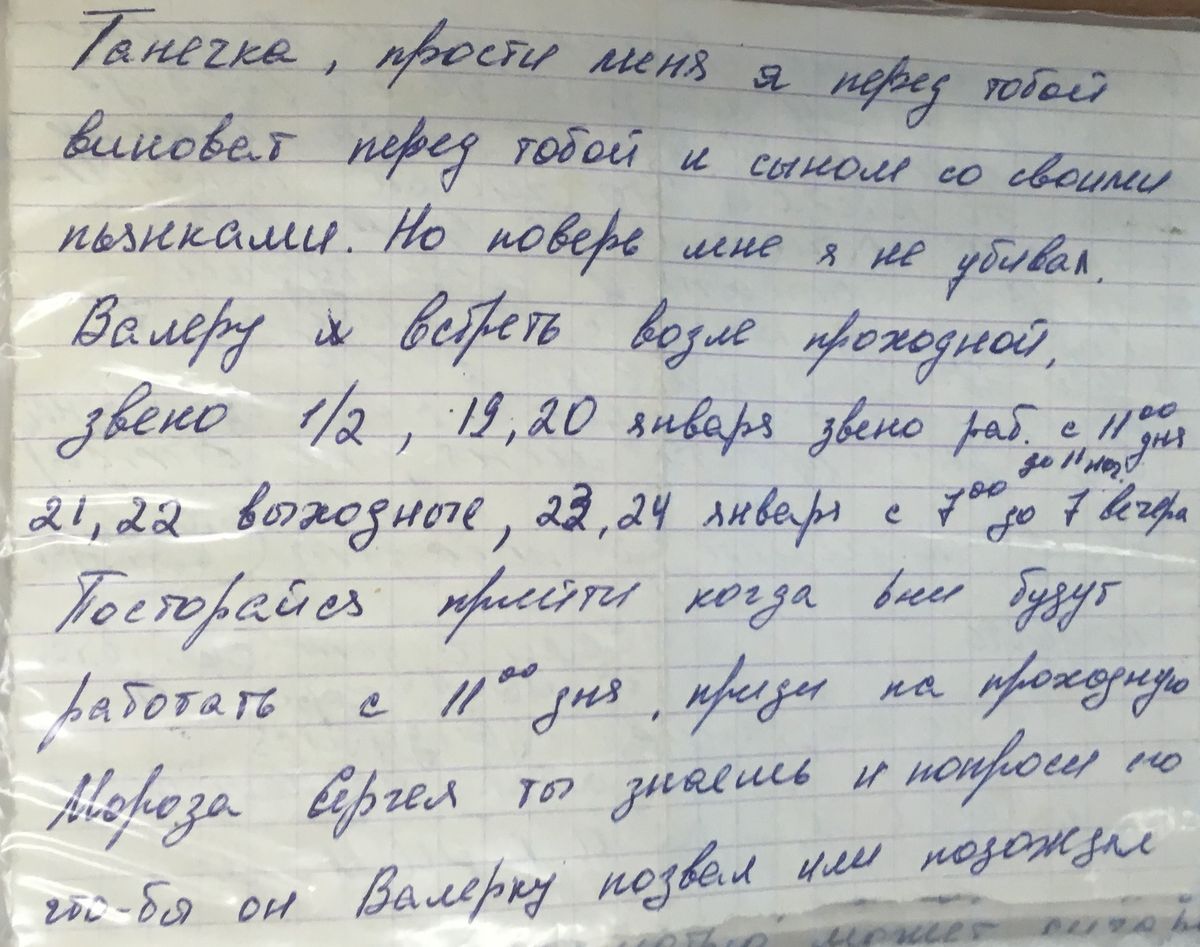 Танечка, прости меня я перед тобой
виноват перед тобой и сыном со своими
пьянками. Но поверь мне я не убивал.
Валеру я встреть возле проходной,
звено 1/2, 19, 20 января звено раб. с 11⁰⁰ дня
до 11 ноч.
21, 22 выходные, 23, 24 января с 7⁰⁰ до 7 вечера
Посторайся прийти когда они будут
работать с 11⁰⁰ дня, приди на проходную
Мороза Сергея ты знаешь и попроси его
что-бы он Валерку позвал или подождал
может